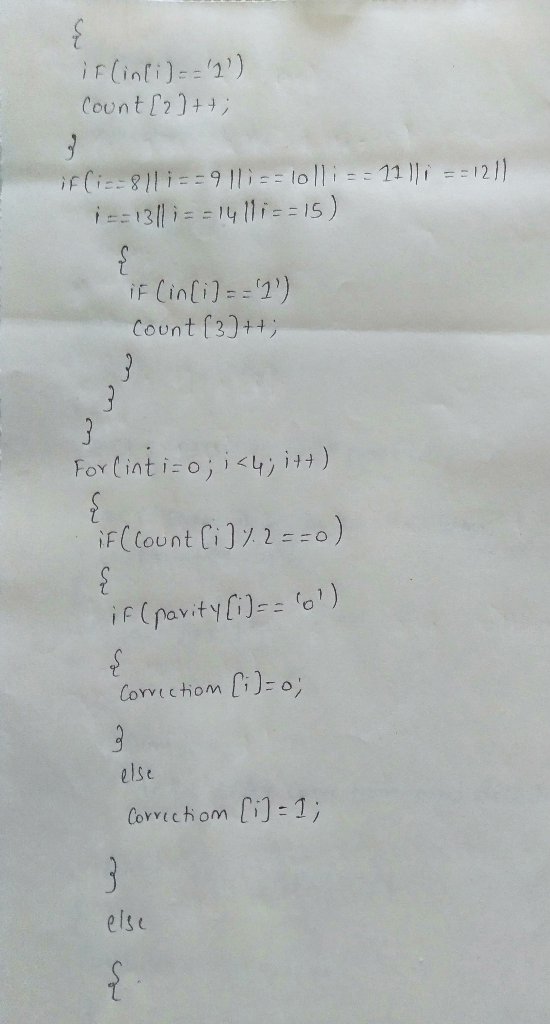 {
if(in[i]=='1')
Count[2]++;
}
if(i==8||i==9||i==10||i==11||i==12||
i==13||i==14||i==15)
{
if(in[i]=='1')
Count[3]++;
}
}
}
For(int i=0; i<4; i++)
{
if(Count[i]%2==0)
{
if(parity[i]=='0')
{
Correction[i]=0;
}
else
Correction[i]=1;
}
else
{